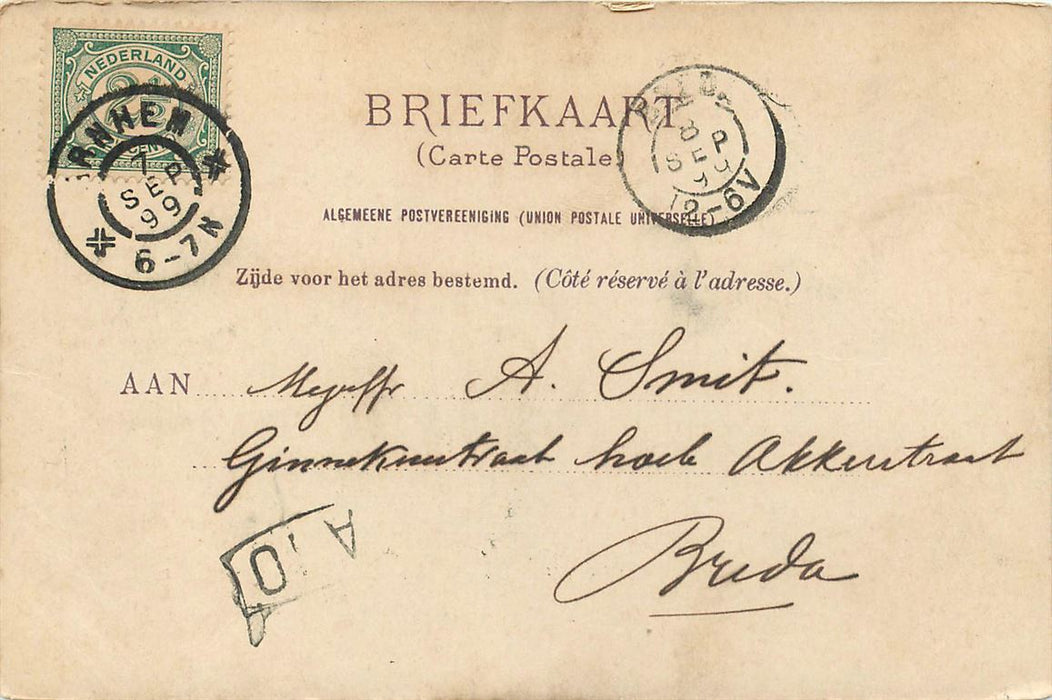 NEDERLAND
2½
CENT
ARNHEM
7
SEP
99
6-7N
BRIEFKAART
(Carte Postale)
ALGEMEENE POSTVEREENIGING (UNION POSTALE UNIVERSELLE)
8
SEP
99
12-6V
Zijde voor het adres bestemd. (Côté réservé à l'adresse.)
AAN Mejuffr A. Smit.
Ginnekenstraat hoek Akkerstraat
Breda
A.O